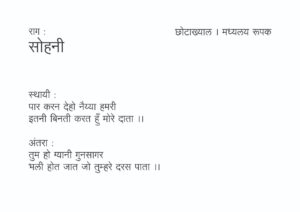 राग :
छोटाख्याल । मध्यलय रूपक
सोहनी
स्थायी :
पार करन देहो नैय्या हमरी
इतनी बिनती करत हुँ मोरे दाता ।।
अंतरा :
तुम हो ग्यानी गुनसागर
भली होत जात जो तुम्हरे दरस पाता ।।